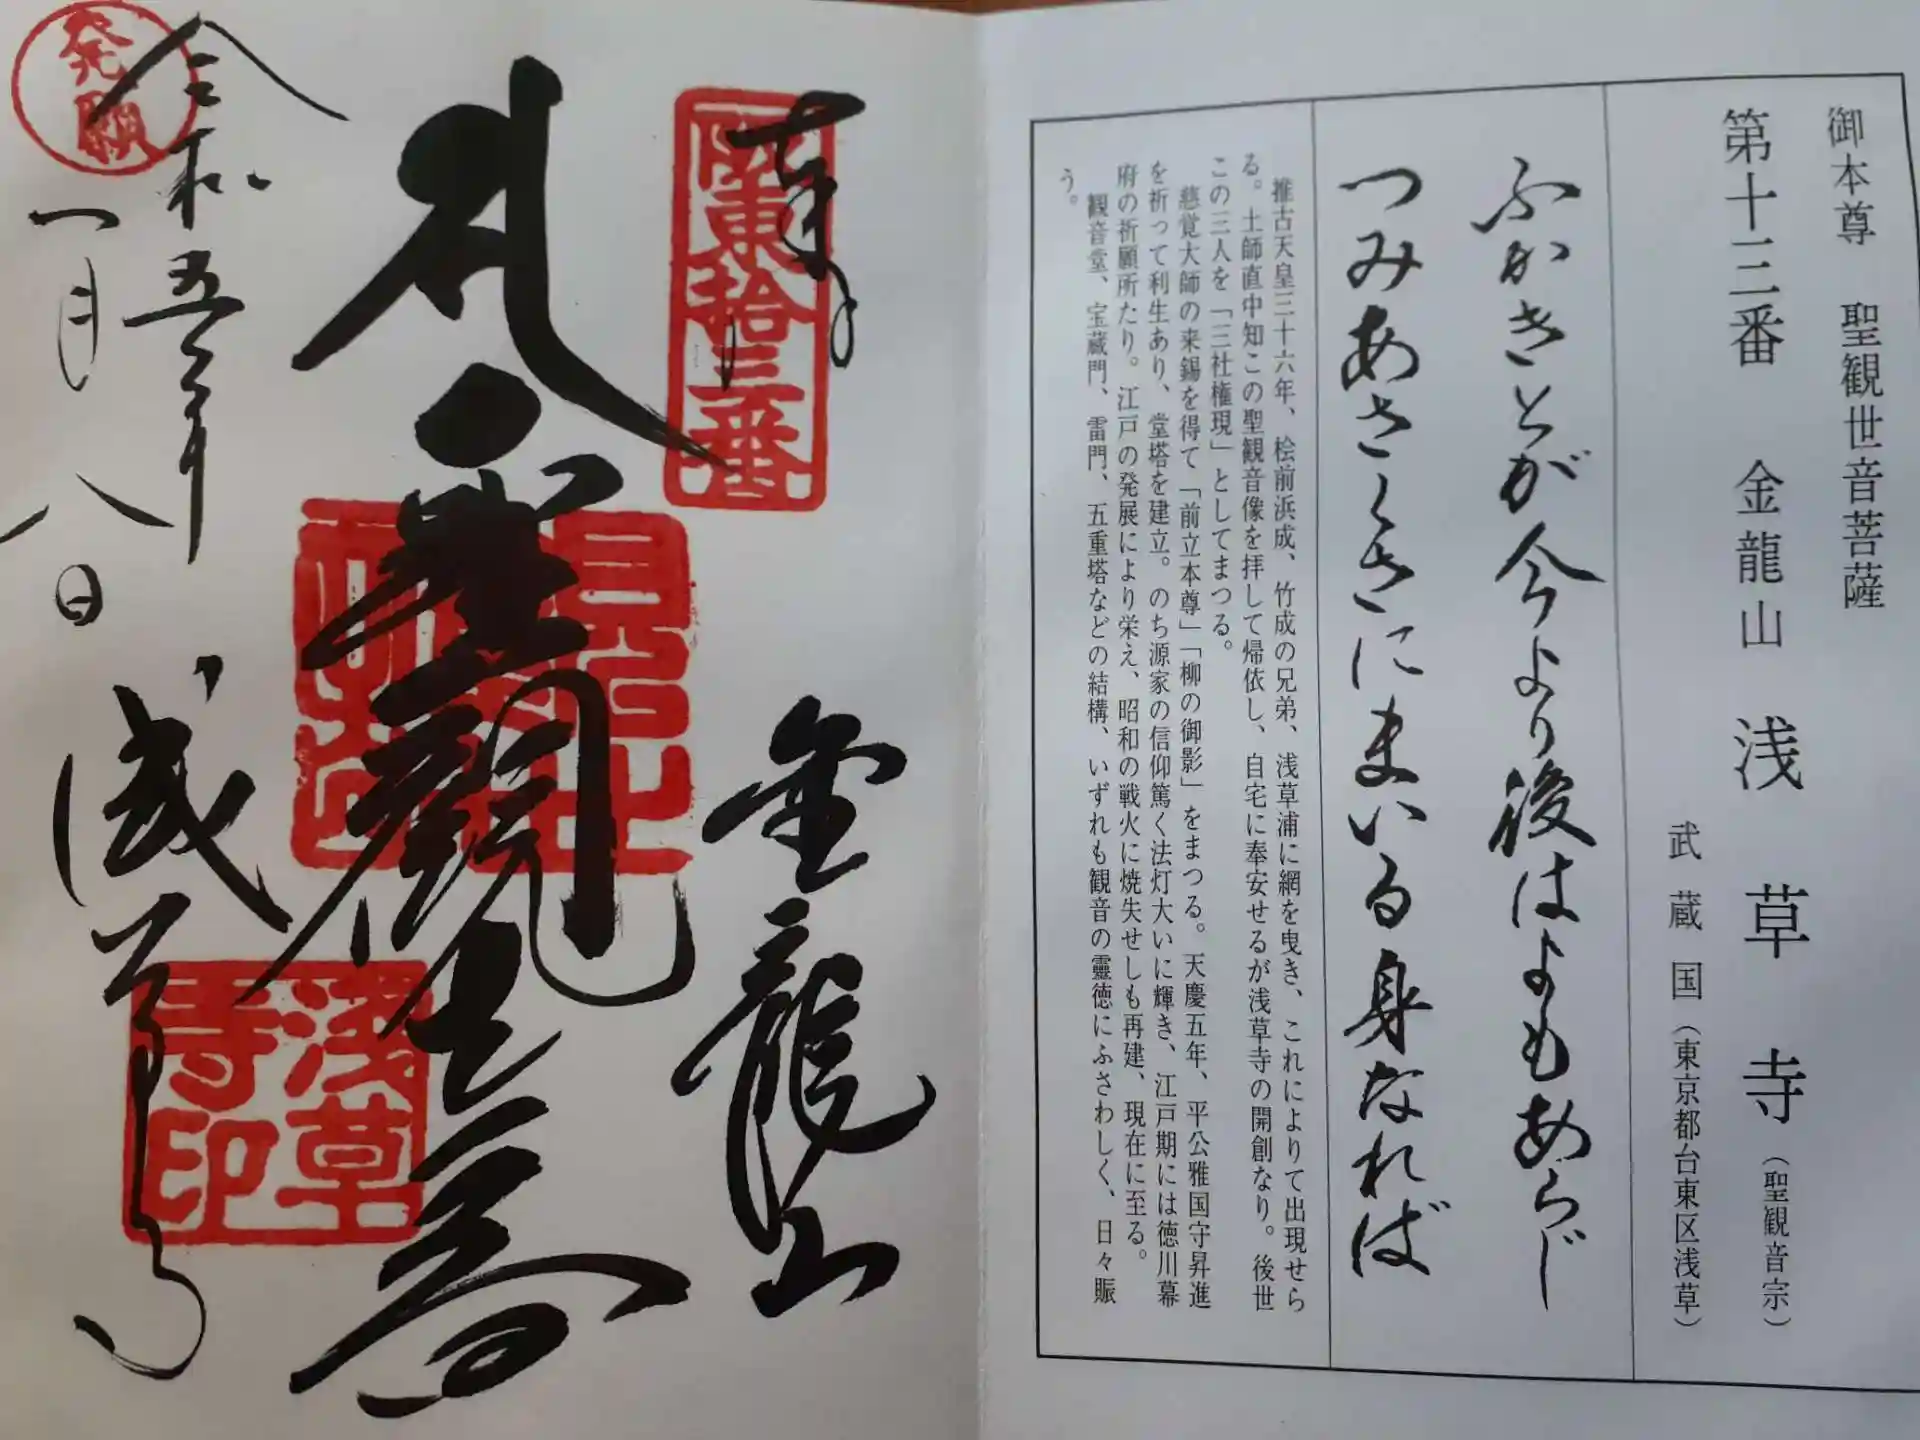 御本尊　聖観世音菩薩
第十三番　金龍山　浅草寺（聖観音宗）
武蔵国（東京都台東区浅草）
ふかきとが今より後はよもあらじ
つみあさくさにまいる身なれば
推古天皇三十六年、桧前浜成、竹成の兄弟、浅草浦に網を曳き、これによりて出現せら
る。土師直中知この聖観音像を拝して帰依し、自宅に奉安せるが浅草寺の開創なり。後世
この三人を「三社権現」としてまつる。
慈覚大師の来錫を得て「前立本尊」「柳の御影」をまつる。天慶五年、平公雅国守昇進
を祈って利生あり、堂塔を建立。のち源家の信仰篤く法灯大いに輝き、江戸期には徳川幕
府の祈願所たり。江戸の発展により栄え、昭和の戦火に焼失せしも再建、現在に至る。
観音堂、宝蔵門、雷門、五重塔などの結構、いずれも観音の靈徳にふさわしく、日々賑
う。
奉
坂東拾三番
金龍山
聖観世音
発願
令和五年
一月八日
浅草寺
浅草寺印